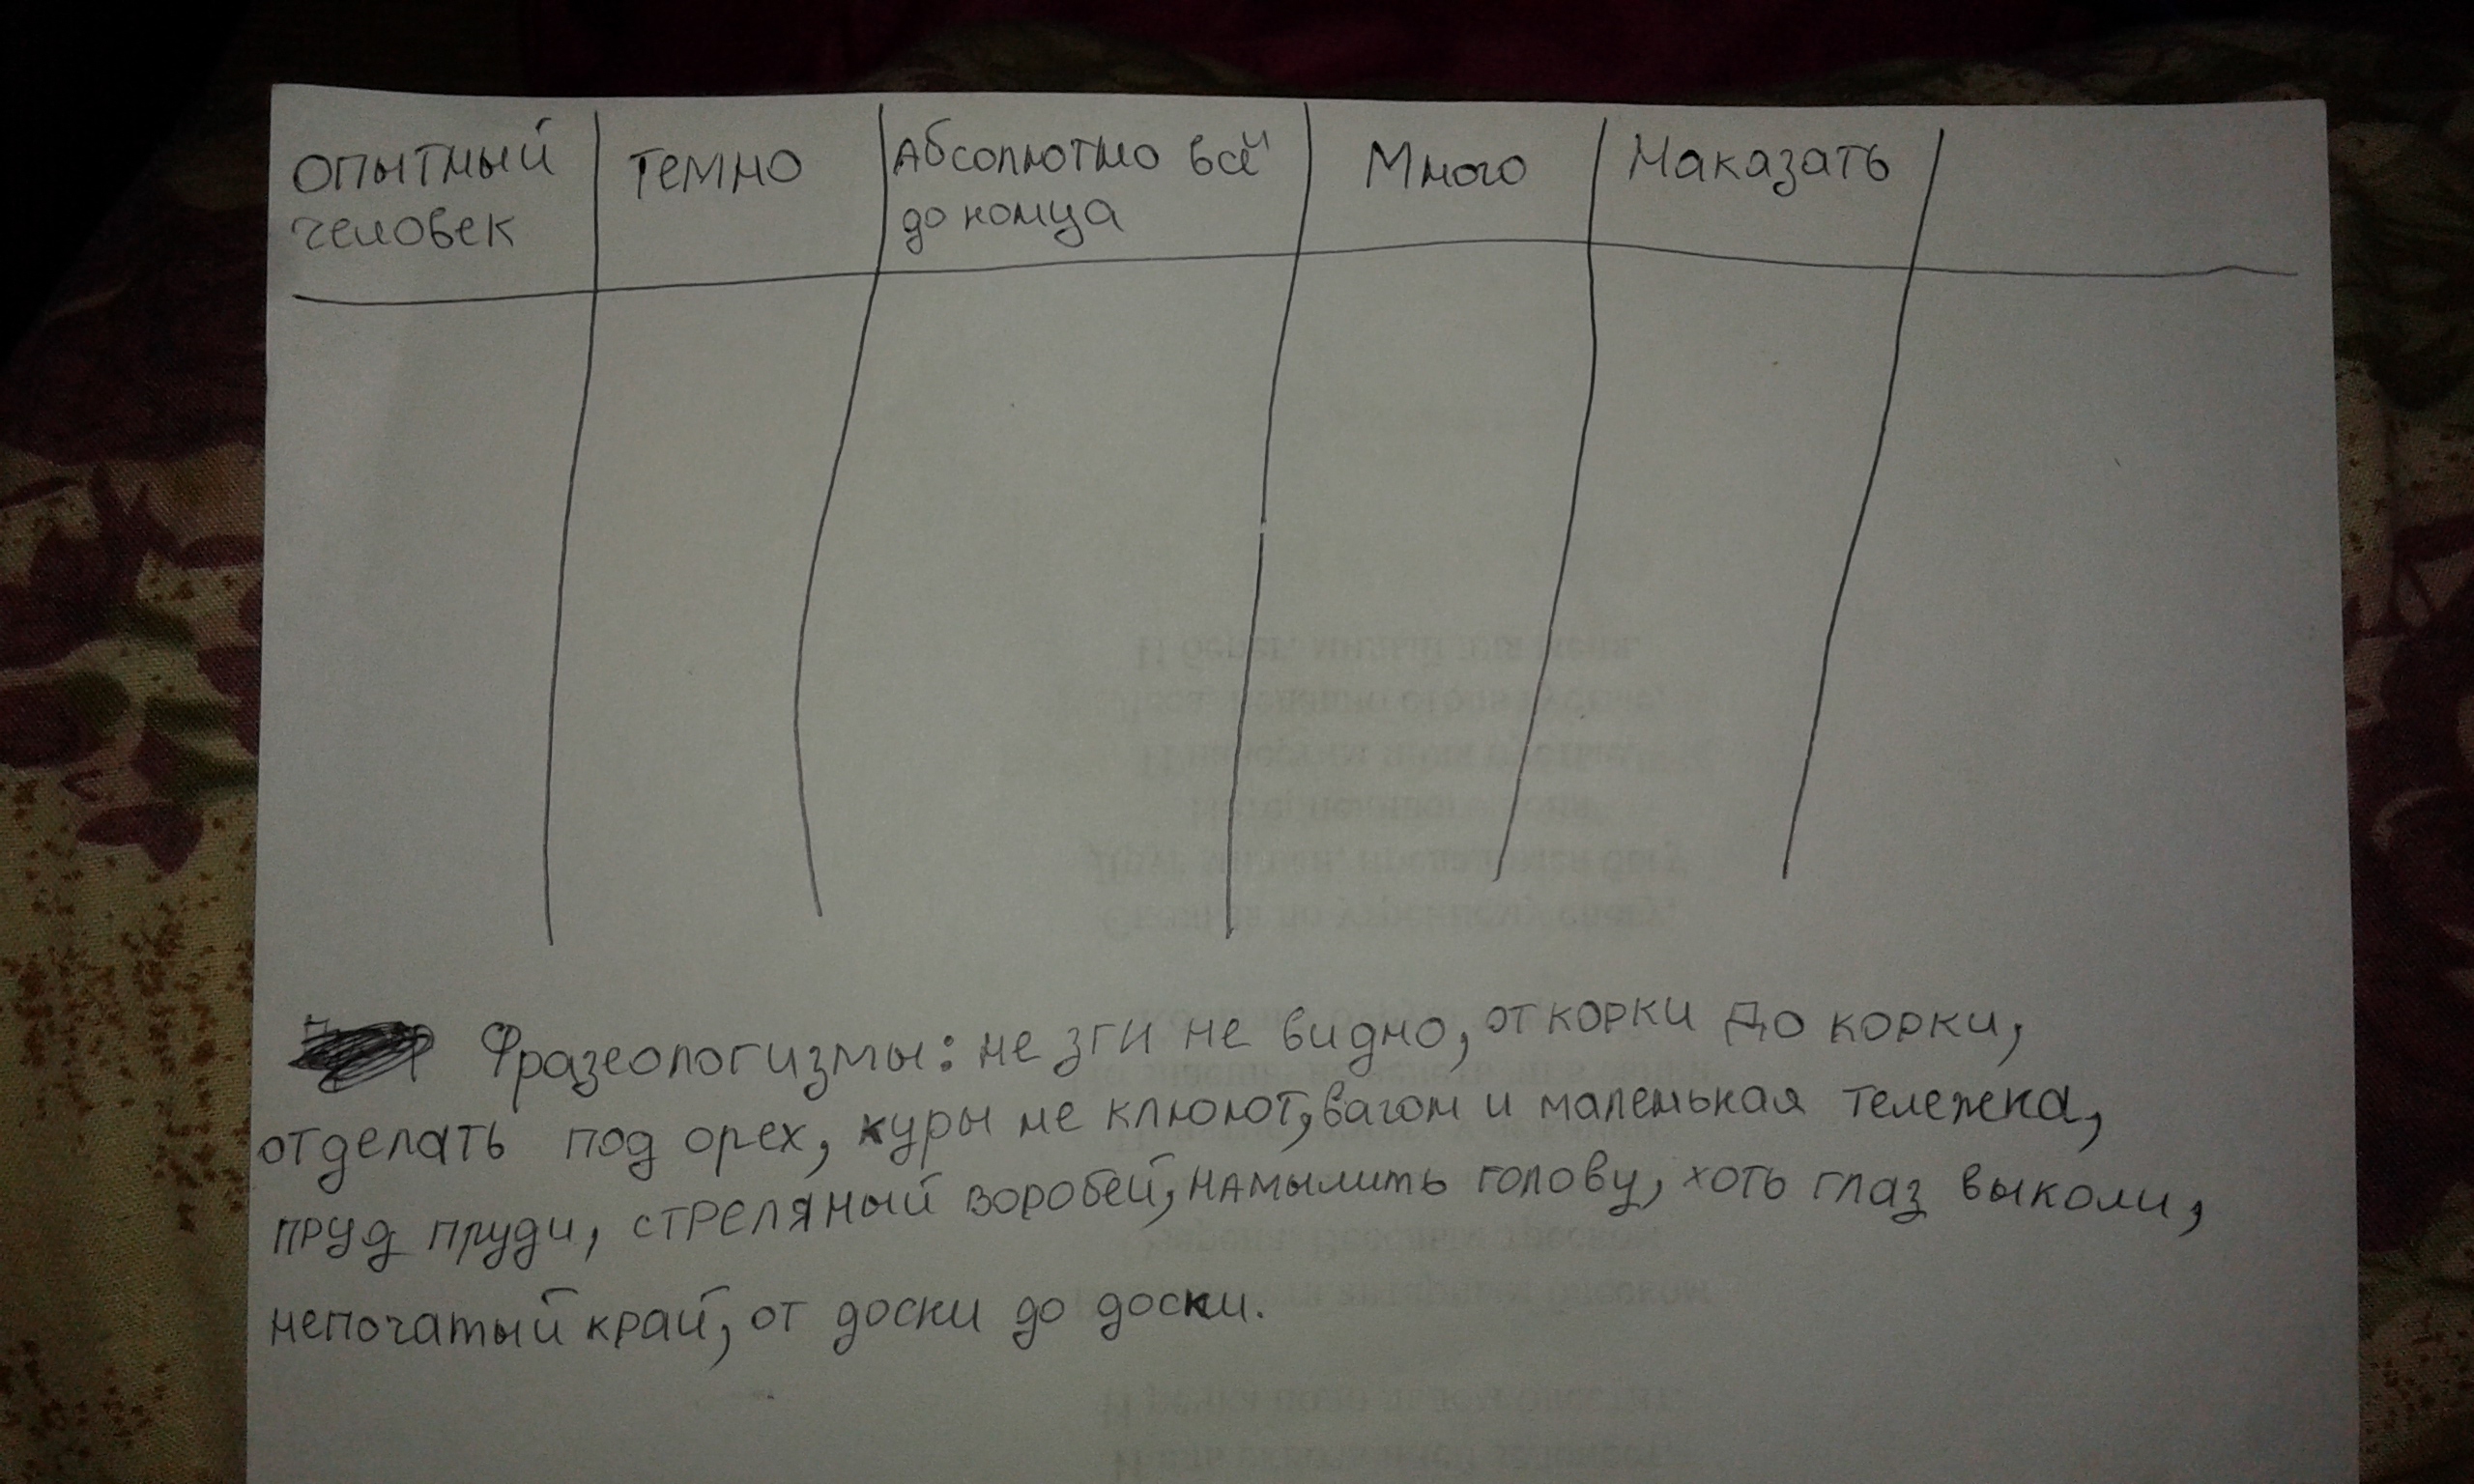 опытный темно Абсолютно всё Много Наказать
человек до конца
Фразеологизмы: не зги не видно, от корки до корки,
отделать под орех, куры не клюют, вагон и маленькая тележка,
пруд пруди, стреляный воробей, намылить голову, хоть глаз выколи,
непочатый край, от доски до доски.